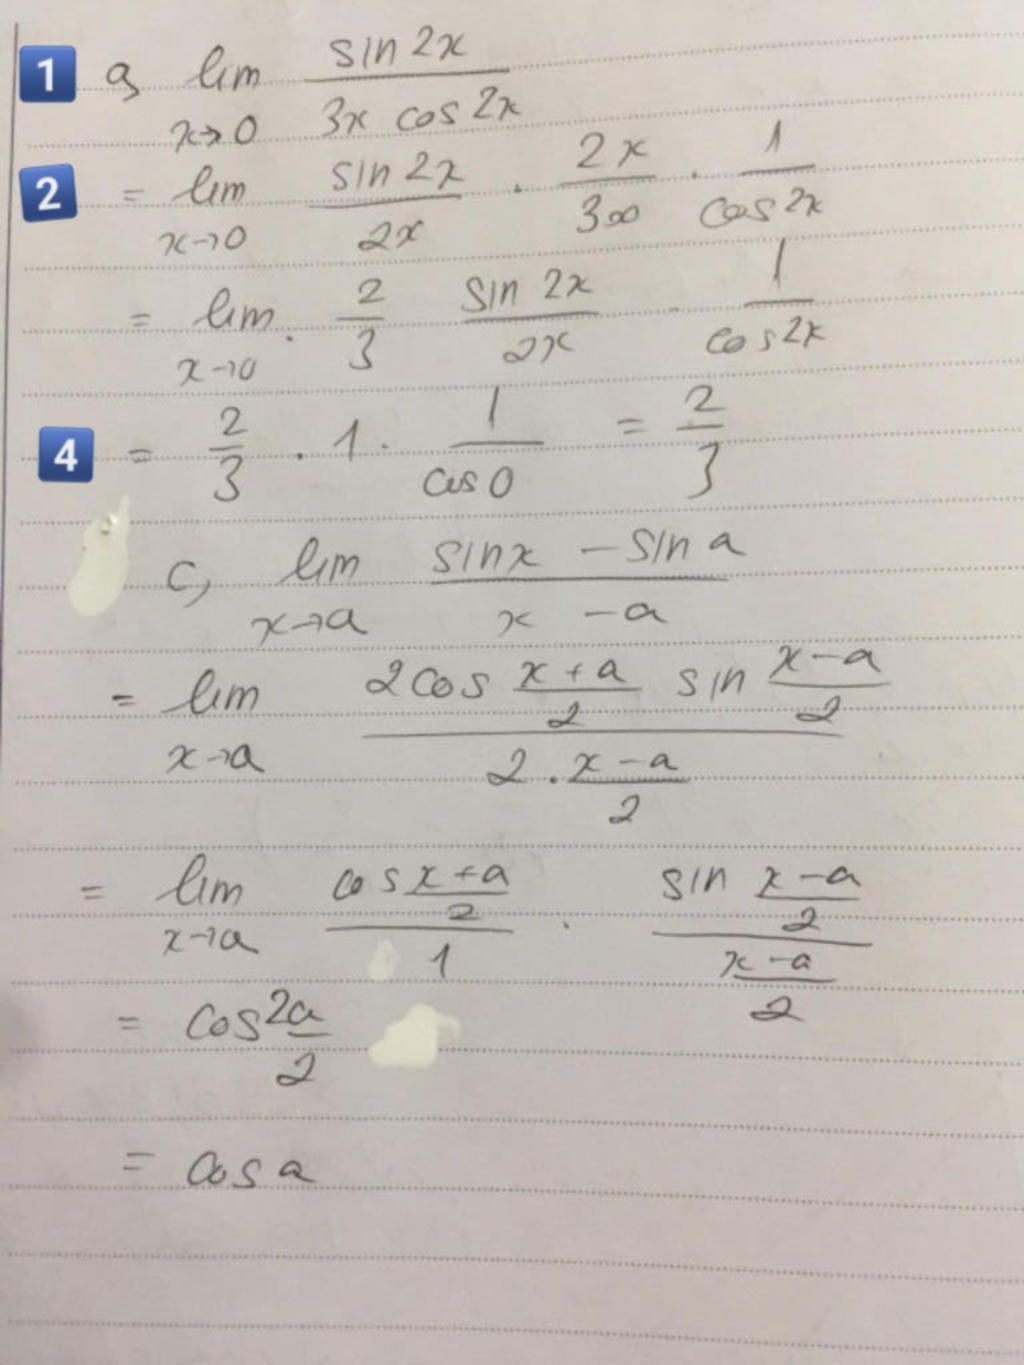 1 a, lim sin 2x / 3x cos 2x
x→0
2 = lim sin 2x / 2x . 2x / 3x . 1 / cos 2x
x→0
= lim . 2/3 sin 2x / 2x . 1 / cos 2x
x→0
4 = 2/3 . 1 . 1 / cos 0 = 2/3
c, lim sin x - sin a / x - a
x→a
= lim 2 cos x+a/2 sin x-a/2 / 2 . x-a/2
x→a
= lim cos x+a/2 / 1 . sin x-a/2 / x-a/2
x→a
= cos 2a/2
= cos a